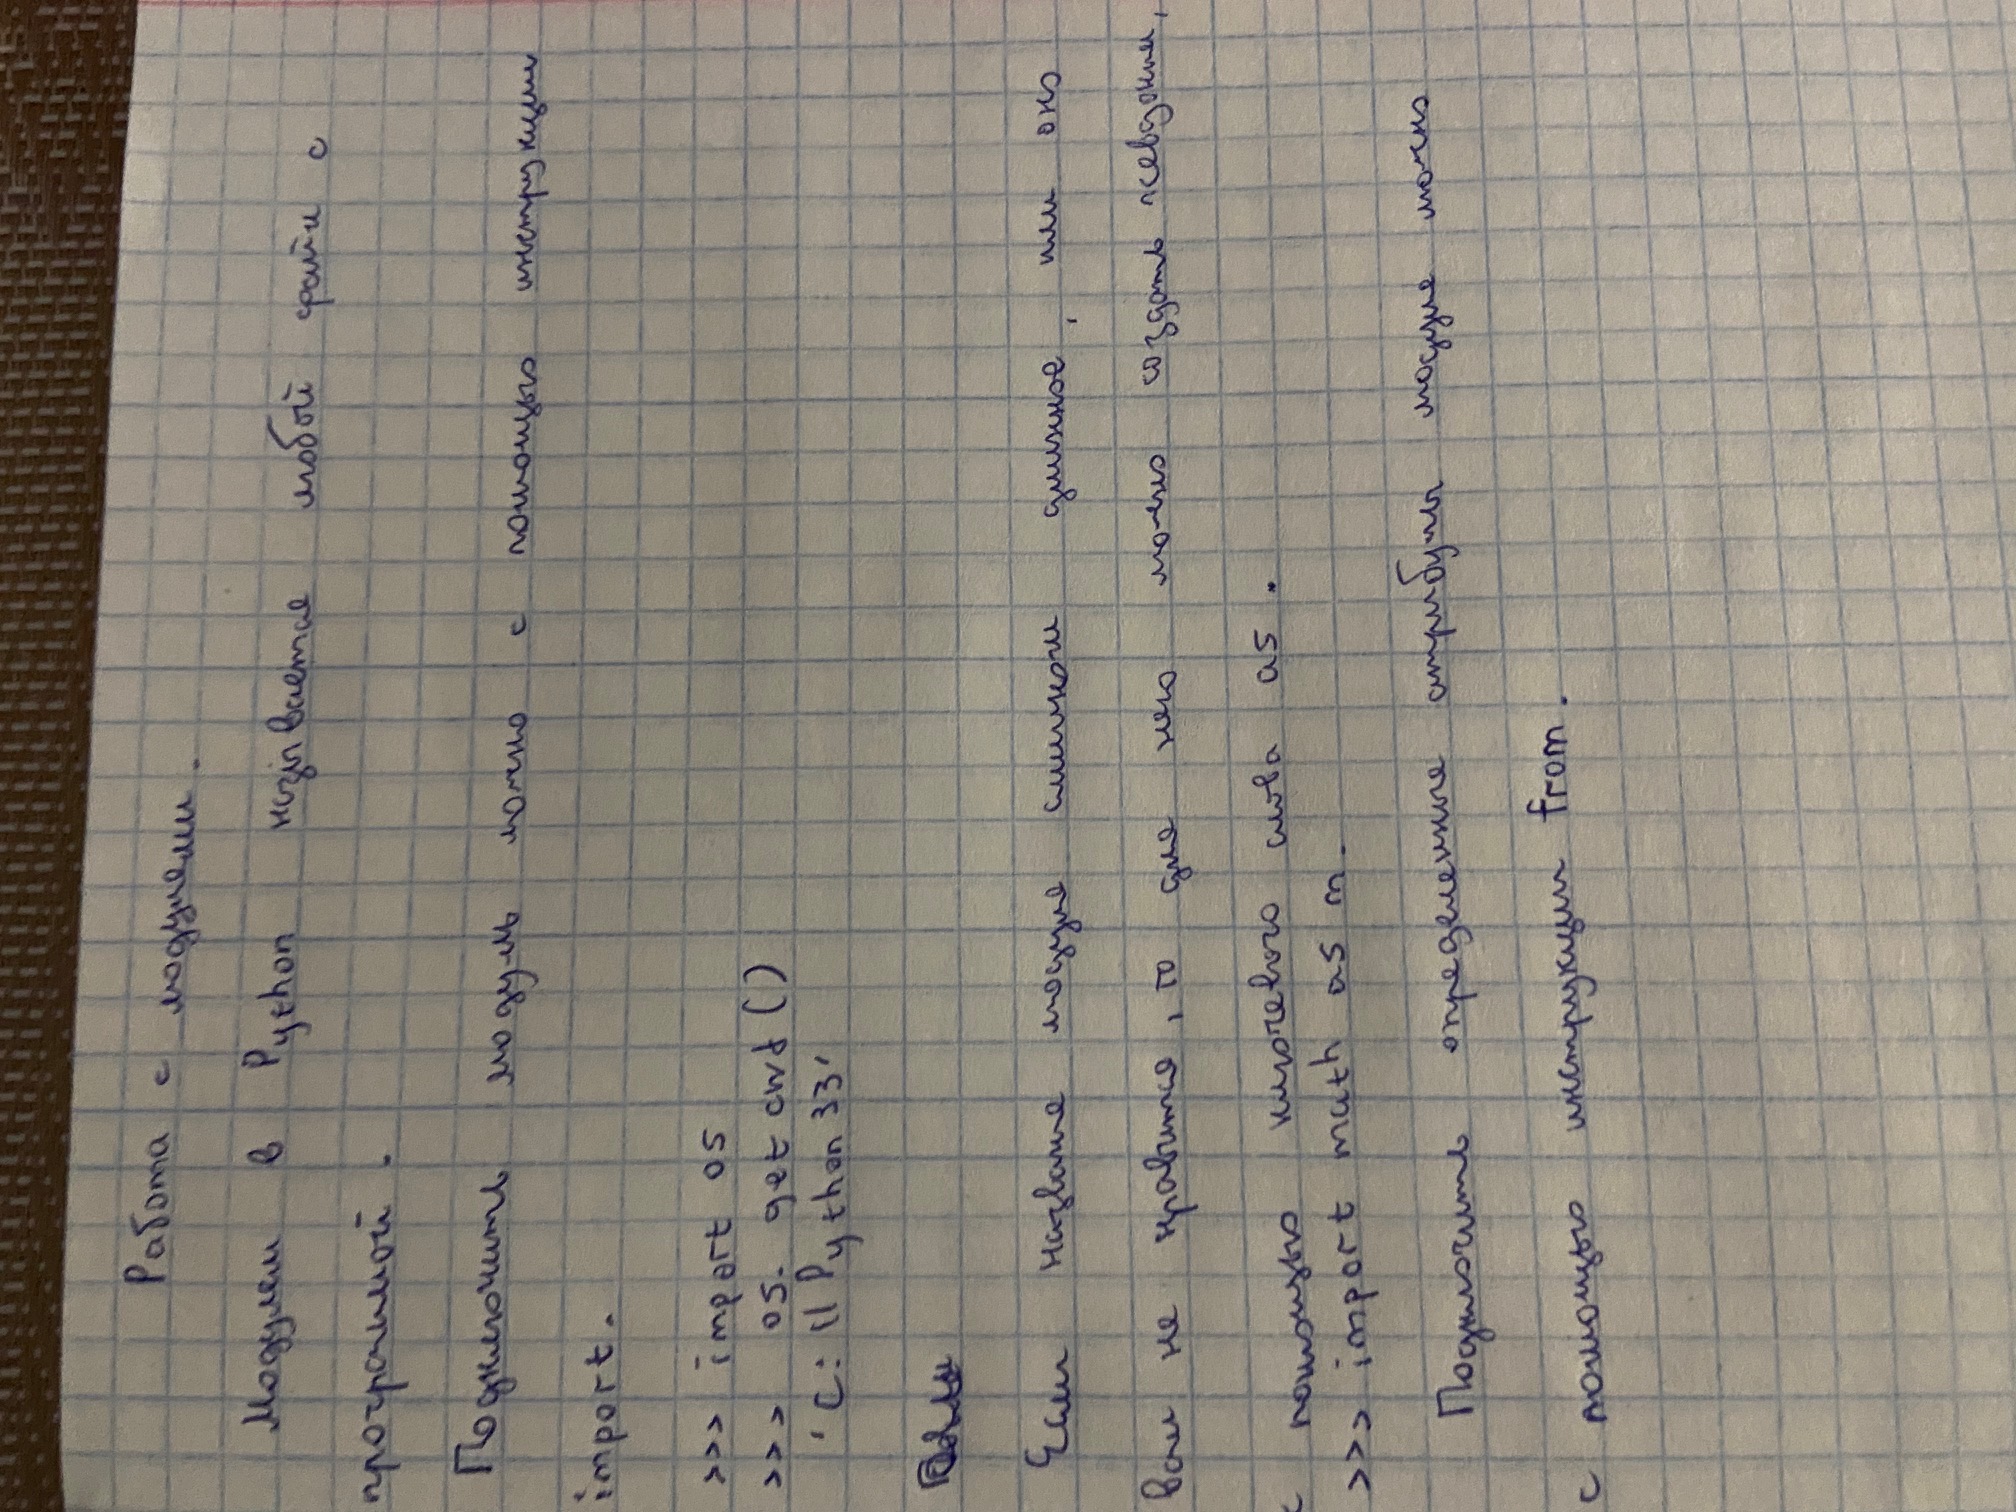 Работа с модулями.
Модулем в Python называется любой файл с
программой.
Подключить модуль можно с помощью инструкции
import.
>>> import os
>>> os. getcwd ()
'C: \\ Python 33'
Если название модуля слишком длинное, или оно
вам не нравится, то для него можно создать псевдоним,
с помощью ключевого слова as.
>>> import math as m.
Подключить определенные атрибуты модуля можно
с помощью инструкции from.